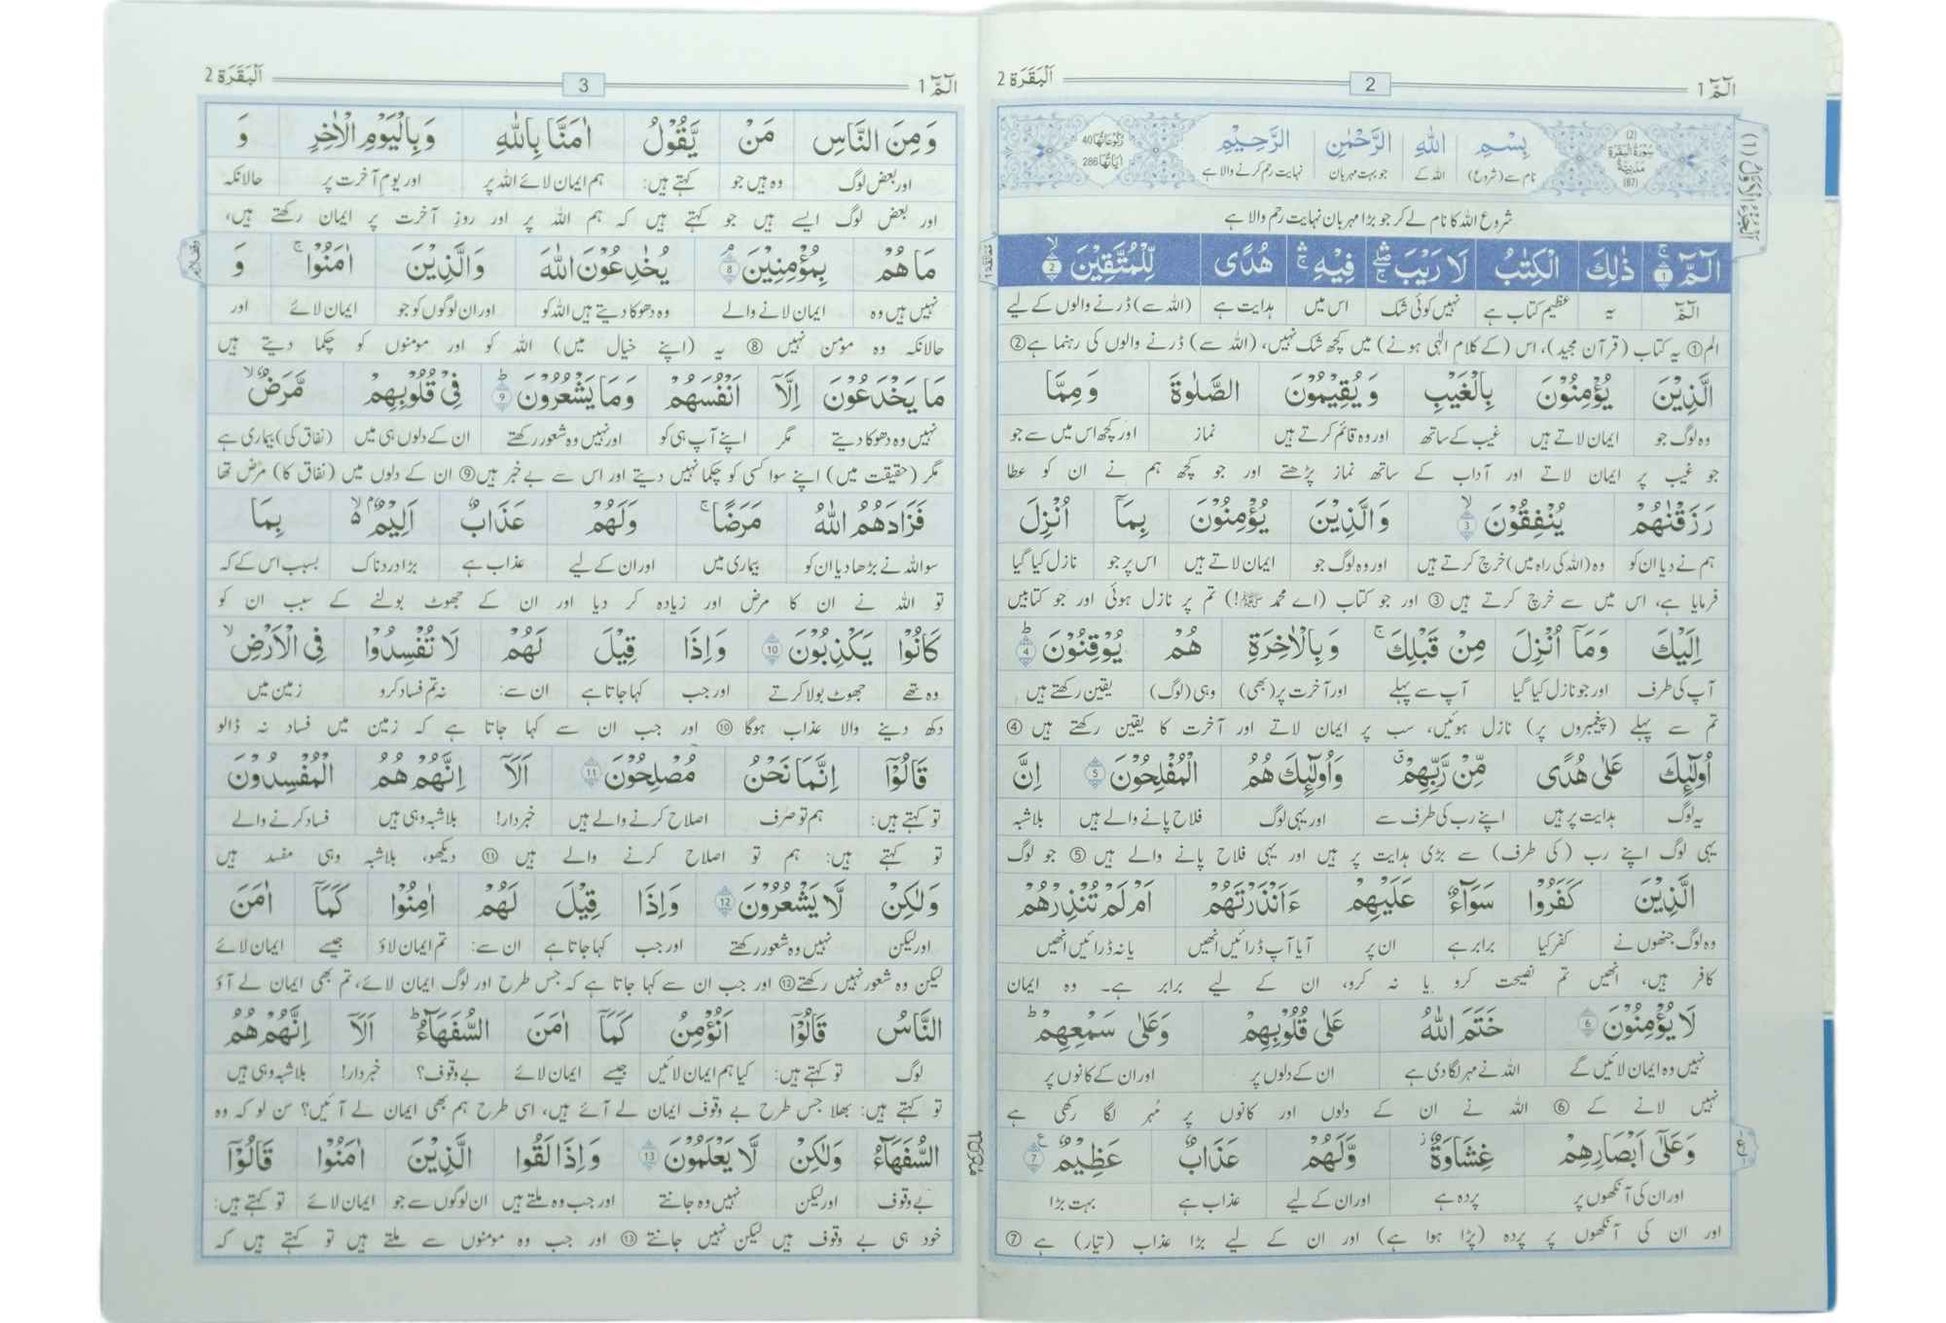 الٓمّٓ 1 2 اَلْبَقَرَة 2
اَلْجُزْءُ الْاَوَّلُ (1)
(2) سُوْرَةُ الْبَقَرَةِ مَدَنِيَّةٌ (87) بِسْمِ اللّٰهِ الرَّحْمٰنِ الرَّحِيْمِ رُكُوْعَاتُهَا 40 اٰيَاتُهَا 286
نام سے (شروع) اللہ کے جو بہت مہربان نہایت رحم کرنے والا ہے
شروع اللہ کا نام لے کر جو بڑا مہربان نہایت رحم والا ہے
الٓمّٓ ۚ 1 ذٰلِكَ الْكِتٰبُ لَا رَيْبَ ۛۖ فِيْهِ ۛۚ هُدًى لِّلْمُتَّقِيْنَ ۙ 2
الٓمّٓ یہ عظیم کتاب ہے نہیں کوئی شک اس میں ہدایت ہے (اللہ سے) ڈرنے والوں کے لیے
الم ① یہ کتاب (قرآن مجید)، اس (کے کلام الٰہی ہونے) میں کچھ شک نہیں، (اللہ سے) ڈرنے والوں کی رہنما ہے ②
الَّذِيْنَ يُؤْمِنُوْنَ بِالْغَيْبِ وَ يُقِيْمُوْنَ الصَّلٰوةَ وَ مِمَّا
وہ لوگ جو ایمان لاتے ہیں غیب کے ساتھ اور وہ قائم کرتے ہیں نماز اور کچھ اس میں سے جو
جو غیب پر ایمان لاتے اور آداب کے ساتھ نماز پڑھتے اور جو کچھ ہم نے ان کو عطا
رَزَقْنٰهُمْ يُنْفِقُوْنَ ۙ 3 وَ الَّذِيْنَ يُؤْمِنُوْنَ بِمَآ اُنْزِلَ
ہم نے دیا ان کو وہ (اللہ کی راہ میں) خرچ کرتے ہیں اور وہ لوگ جو ایمان لاتے ہیں اس پر جو نازل کیا گیا
فرمایا ہے، اس میں سے خرچ کرتے ہیں ③ اور جو کتاب (اے محمد ﷺ!) تم پر نازل ہوئی اور جو کتابیں
اِلَيْكَ وَمَآ اُنْزِلَ مِنْ قَبْلِكَ ۚ وَ بِالْاٰخِرَةِ هُمْ يُوْقِنُوْنَ ؕ 4
آپ کی طرف اور جو نازل کیا گیا آپ سے پہلے اور آخرت پر (بھی) وہی (لوگ) یقین رکھتے ہیں
تم سے پہلے (پیغمبروں پر) نازل ہوئیں، سب پر ایمان لاتے اور آخرت کا یقین رکھتے ہیں ④
اُولٰٓئِكَ عَلٰى هُدًى مِّنْ رَّبِّهِمْ ۗ وَ اُولٰٓئِكَ هُمُ الْمُفْلِحُوْنَ 5 اِنَّ
یہ لوگ ہدایت پر ہیں اپنے رب کی طرف سے اور یہی لوگ فلاح پانے والے ہیں بلاشبہ
یہی لوگ اپنے رب (کی طرف) سے بڑی ہدایت پر ہیں اور یہی فلاح پانے والے ہیں ⑤ جو لوگ
الَّذِيْنَ كَفَرُوْا سَوَآءٌ عَلَيْهِمْ ءَاَنْذَرْتَهُمْ اَمْ لَمْ تُنْذِرْهُمْ
وہ لوگ جنھوں نے کفر کیا برابر ہے ان پر آیا آپ ڈرائیں انھیں یا نہ ڈرائیں انھیں
کافر ہیں، انھیں تم نصیحت کرو یا نہ کرو، ان کے لیے برابر ہے۔ وہ ایمان
لَا يُؤْمِنُوْنَ 6 خَتَمَ اللّٰهُ عَلٰى قُلُوْبِهِمْ وَعَلٰى سَمْعِهِمْ ؕ
نہیں وہ ایمان لائیں گے اللہ نے مہر لگا دی ہے ان کے دلوں پر اور ان کے کانوں پر
نہیں لانے کے ⑥ اللہ نے ان کے دلوں اور کانوں پر مُہر لگا رکھی ہے
وَ عَلٰٓى اَبْصَارِهِمْ غِشَاوَةٌ ۫ وَّلَهُمْ عَذَابٌ عَظِيْمٌ 7
اور ان کی آنکھوں پر پردہ ہے اور ان کے لیے عذاب ہے بہت بڑا
اور ان کی آنکھوں پر پردہ (پڑا ہوا ہے) اور ان کے لیے بڑا عذاب (تیار) ہے ⑦
الٓمّٓ 1 3 اَلْبَقَرَة 2
وَ مِنَ النَّاسِ مَنْ يَّقُوْلُ اٰمَنَّا بِاللّٰهِ وَ بِالْيَوْمِ الْاٰخِرِ وَ
اور بعض لوگ وہ ہیں جو کہتے ہیں: ہم ایمان لائے اللہ پر اور یوم آخرت پر حالانکہ
اور بعض لوگ ایسے ہیں جو کہتے ہیں کہ ہم اللہ پر اور روزِ آخرت پر ایمان رکھتے ہیں،
مَا هُمْ بِمُؤْمِنِيْنَ ۘ 8 يُخٰدِعُوْنَ اللّٰهَ وَالَّذِيْنَ اٰمَنُوْا ۚ وَ
نہیں ہیں وہ ایمان لانے والے وہ دھوکا دیتے ہیں اللہ کو اور ان لوگوں کو جو ایمان لائے اور
حالانکہ وہ مومن نہیں ⑧ یہ (اپنے خیال میں) اللہ کو اور مومنوں کو چکما دیتے ہیں
مَا يَخْدَعُوْنَ اِلَّآ اَنْفُسَهُمْ وَمَا يَشْعُرُوْنَ ؕ 9 فِيْ قُلُوْبِهِمْ مَّرَضٌ ۙ
نہیں وہ دھوکا دیتے مگر اپنے آپ ہی کو اور نہیں وہ شعور رکھتے ان کے دلوں ہی میں (نفاق کی) بیماری ہے
مگر (حقیقت میں) اپنے سوا کسی کو چکما نہیں دیتے اور اس سے بے خبر ہیں ⑨ ان کے دلوں میں (نفاق کا) مرض تھا
فَزَادَهُمُ اللّٰهُ مَرَضًا ۚ وَلَهُمْ عَذَابٌ اَلِيْمٌۢ ۙ بِمَا
سو اللہ نے بڑھا دیا ان کو بیماری میں اور ان کے لیے عذاب ہے بڑا دردناک بسبب اس کے کہ
تو اللہ نے ان کا مرض اور زیادہ کر دیا اور ان کے جھوٹ بولنے کے سبب ان کو
كَانُوْا يَكْذِبُوْنَ 10 وَ اِذَا قِيْلَ لَهُمْ لَا تُفْسِدُوْا فِي الْاَرْضِ ۙ
وہ تھے جھوٹ بولا کرتے اور جب کہا جاتا ہے ان سے: نہ تم فساد کرو زمین میں
دکھ دینے والا عذاب ہوگا ⑩ اور جب ان سے کہا جاتا ہے کہ زمین میں فساد نہ ڈالو
قَالُوْٓا اِنَّمَا نَحْنُ مُصْلِحُوْنَ 11 اَلَآ اِنَّهُمْ هُمُ الْمُفْسِدُوْنَ
تو کہتے ہیں: ہم تو صرف اصلاح کرنے والے ہیں خبردار! بلاشبہ وہی ہیں فساد کرنے والے
تو کہتے ہیں: ہم تو اصلاح کرنے والے ہیں ⑪ دیکھو، بلاشبہ وہی مفسد ہیں
وَلٰكِنْ لَّا يَشْعُرُوْنَ 12 وَ اِذَا قِيْلَ لَهُمْ اٰمِنُوْا كَمَآ اٰمَنَ
اور لیکن نہیں وہ شعور رکھتے اور جب کہا جاتا ہے ان سے: تم ایمان لاؤ جیسے ایمان لائے
لیکن وہ شعور نہیں رکھتے ⑫ اور جب ان سے کہا جاتا ہے کہ جس طرح اور لوگ ایمان لائے، تم بھی ایمان لے آؤ
النَّاسُ قَالُوْٓا اَنُؤْمِنُ كَمَآ اٰمَنَ السُّفَهَآءُ ؕ اَلَآ اِنَّهُمْ هُمُ
لوگ تو کہتے ہیں: کیا ہم ایمان لائیں جیسے ایمان لائے بے وقوف؟ خبردار! بلاشبہ وہی ہیں
تو کہتے ہیں: بھلا جس طرح بے وقوف ایمان لے آئے ہیں، اسی طرح ہم بھی ایمان لے آئیں؟ سن لو کہ وہ
السُّفَهَآءُ وَلٰكِنْ لَّا يَعْلَمُوْنَ 13 وَ اِذَا لَقُوا الَّذِيْنَ اٰمَنُوْا قَالُوْٓا
بے وقوف اور لیکن نہیں وہ جانتے اور جب وہ ملتے ہیں ان لوگوں سے جو ایمان لائے تو کہتے ہیں:
خود ہی بے وقوف ہیں لیکن نہیں جانتے ⑬ اور جب وہ مومنوں سے ملتے ہیں تو کہتے ہیں کہ